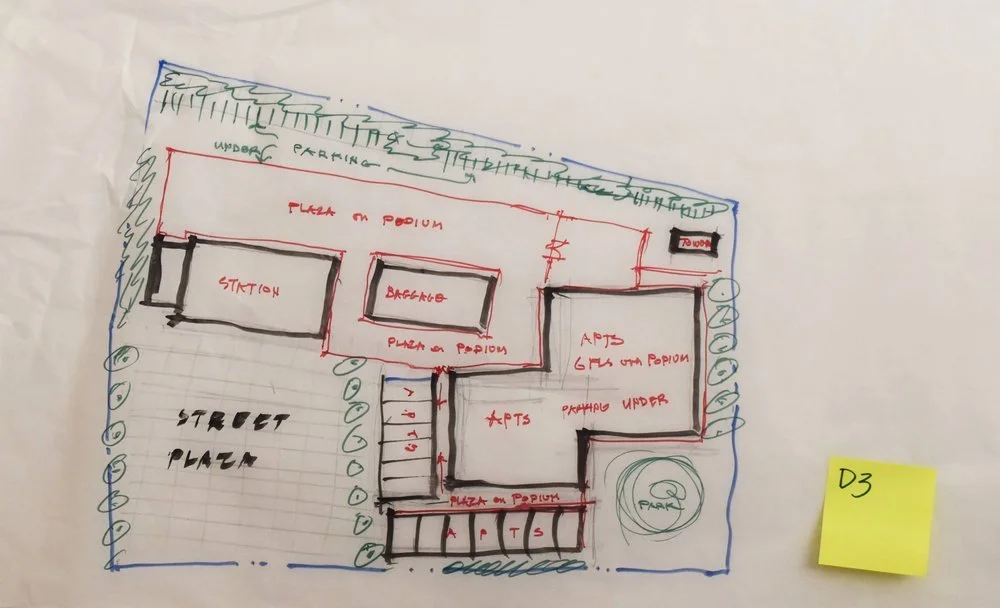 UNDER PARKING
PLAZA on PODIUM
STATION
BAGGAGE
PLAZA on PODIUM
APTS
6 FLS over PODIUM
PARKING UNDER
APTS
APTS
STREET
PLAZA
PLAZA on PODIUM
APTS
PARK
D3